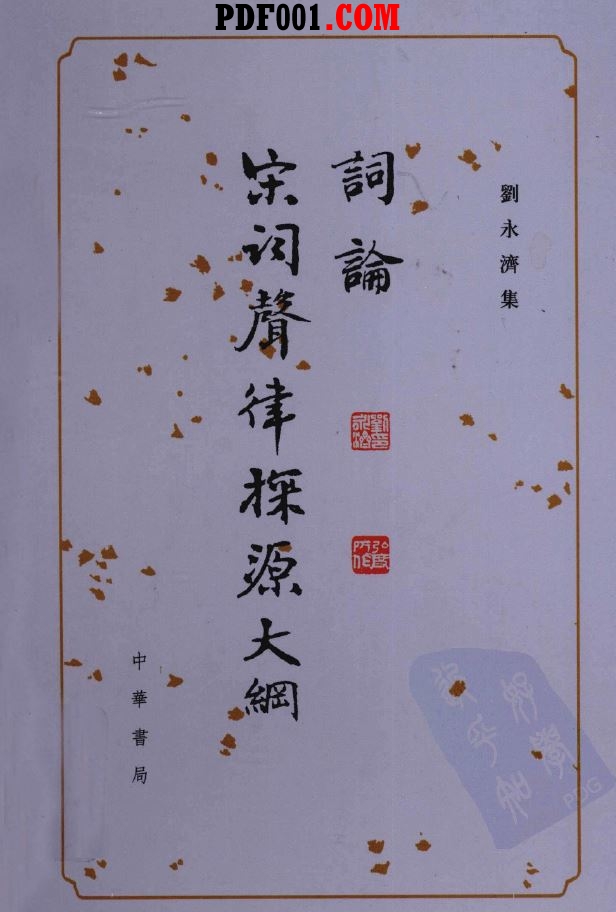 PDF001.COM
劉永濟集
詞論
宋词聲律探源大綱
中華書局
PDG